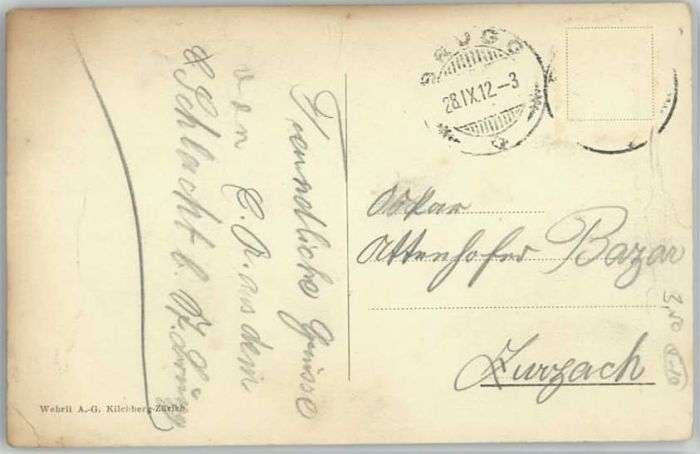 Freundliche Grüsse
von C. R. aus dem
Schlacht b.
BRUGG
28.IX.12-3
Oskar
Attenhofer Bazar
Zurzach
3,50
Wehrli A.-G. Kilchberg-Zürich